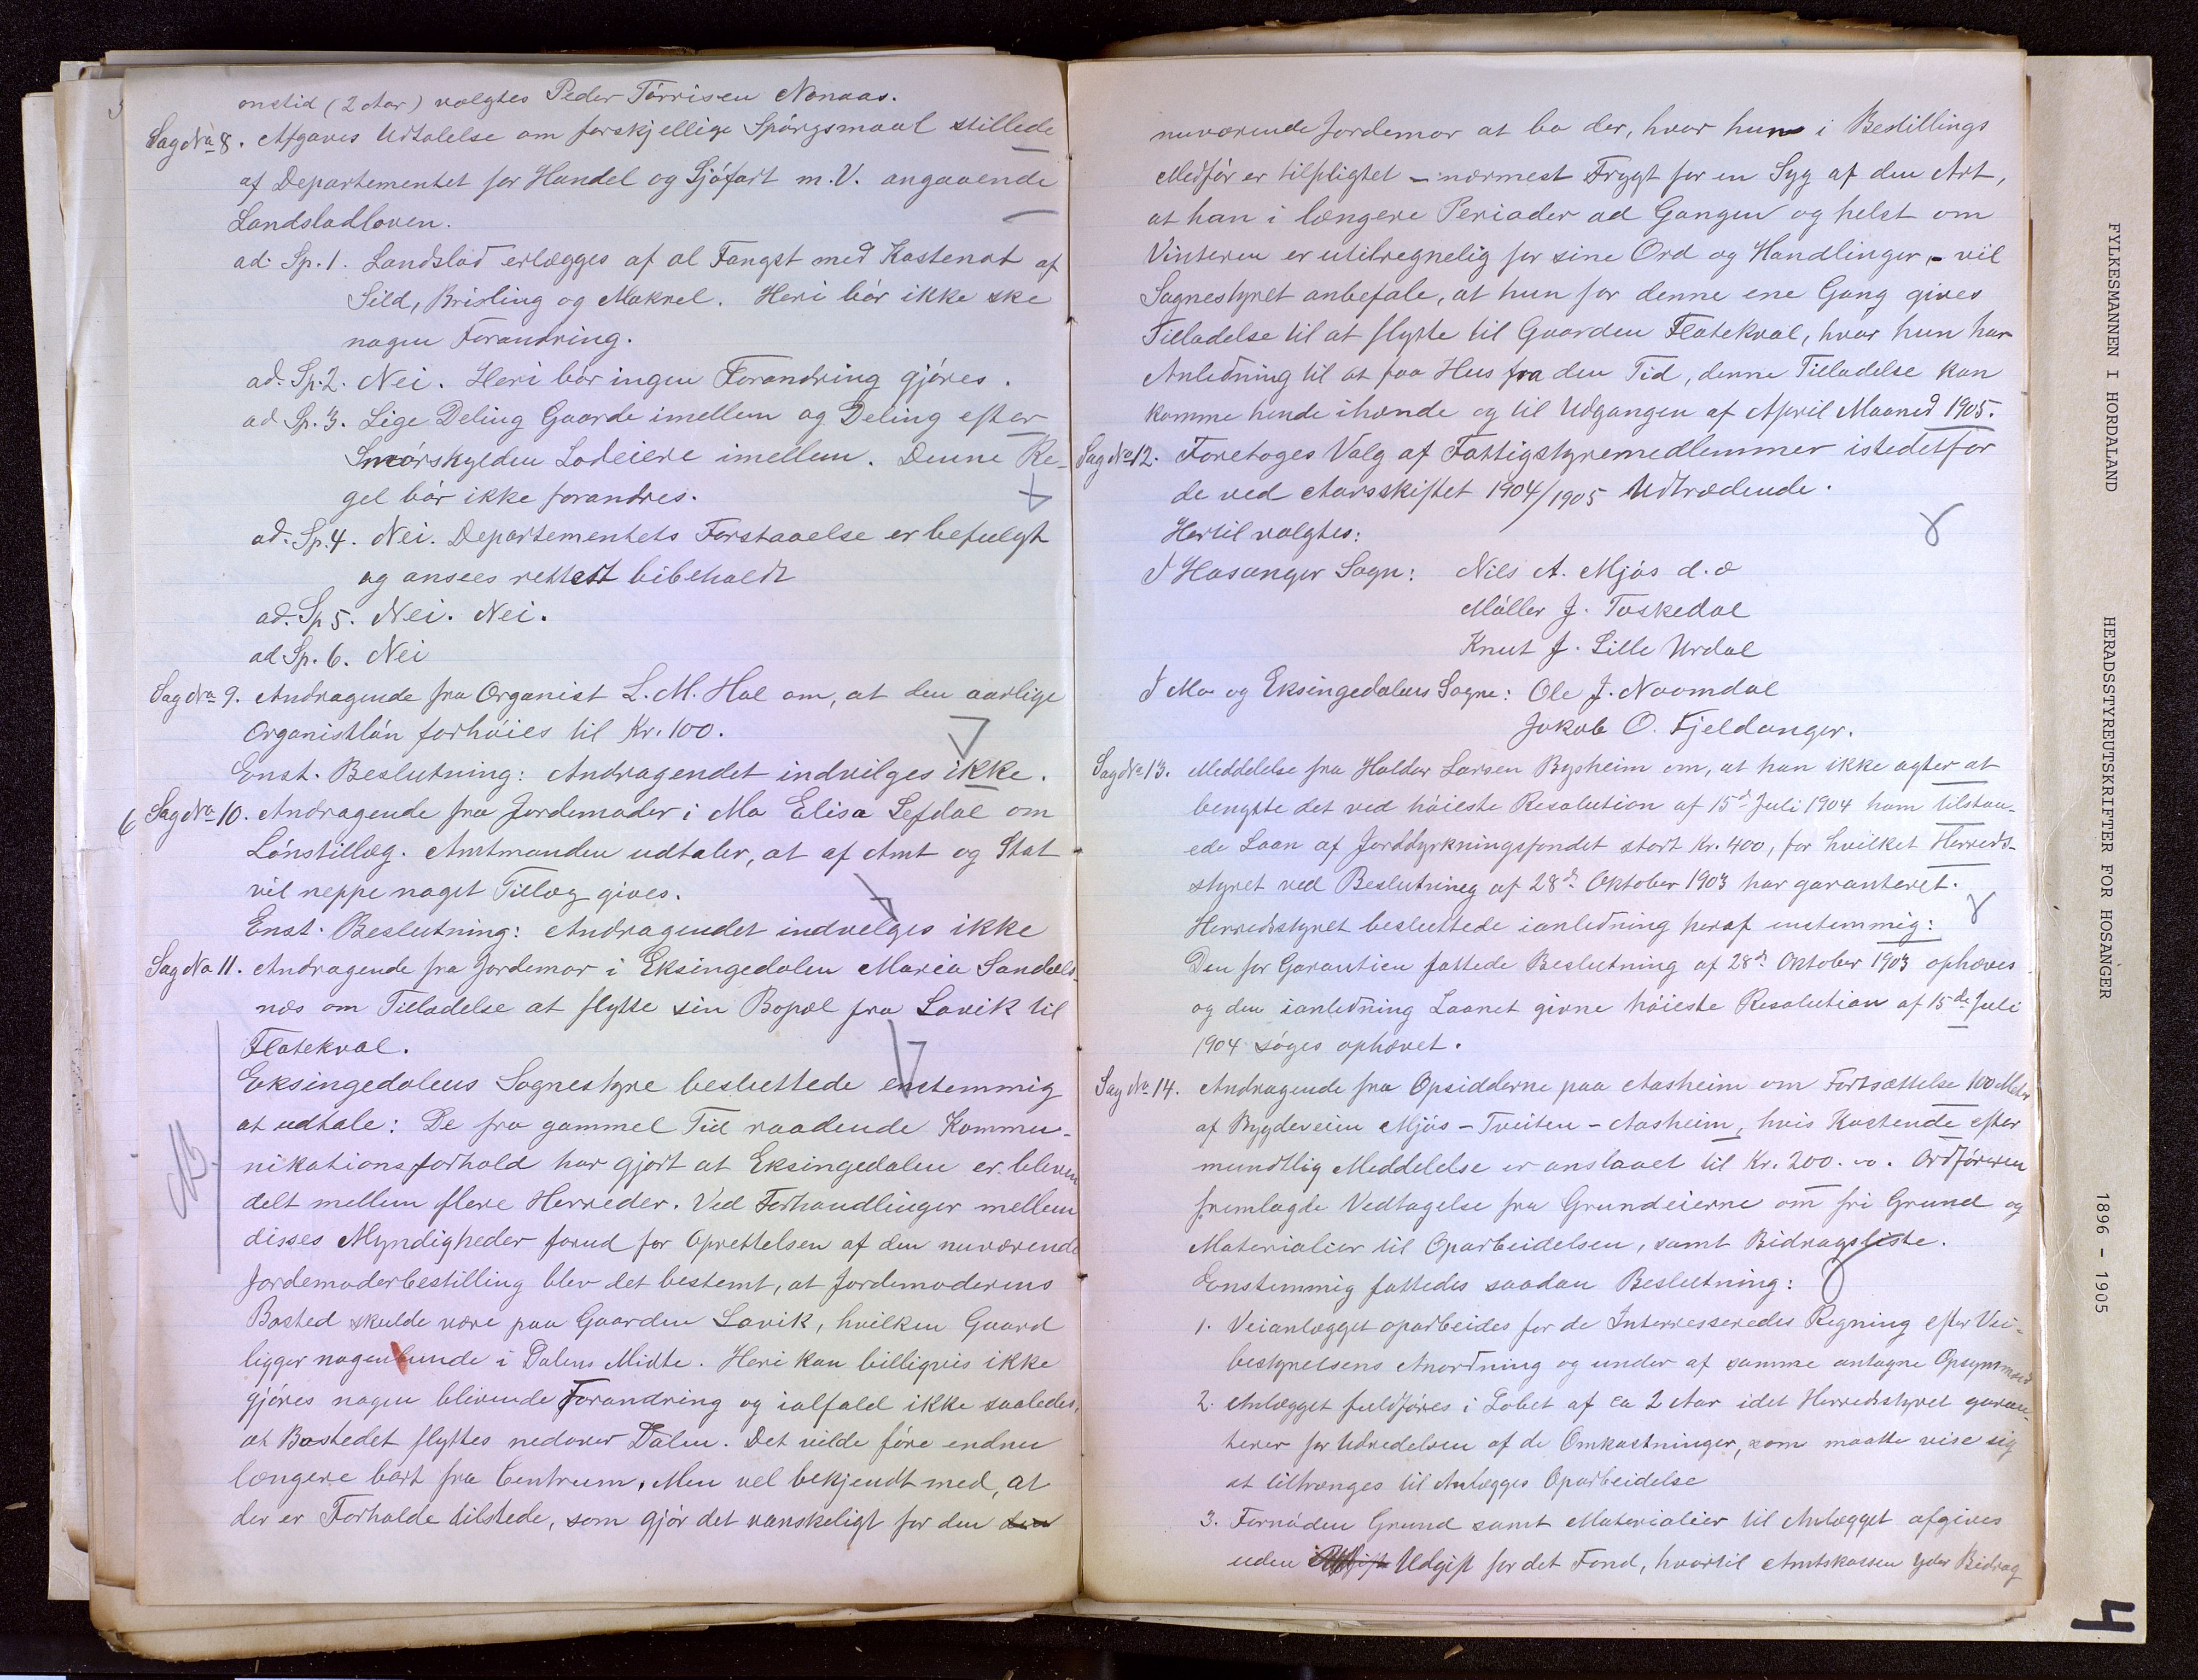 onstid (2 Aar) valgtes Peder Tórrisen Nonaas.
Sag No 8. Afgaves Udtalelse om forskjellige Spórgsmaal stillede
af Departementet for Handel og Sjófart m.V. angaaende
Landslodloven.
ad Sp. 1. Landslod erlægges af al Fangst med Kastenot af
Sild, Brisling og Makrel. Heri bór ikke ske
nogen Forandring.
ad. Sp. 2. Nei. Heri bór ingen Forandring gjóres.
ad Sp. 3. Lige Deling Gaarde imellem og Deling efter
Smórskylden Lodeiere imellem. Denne Re-
gel bór ikke forandres.
ad. Sp. 4. Nei. Departementets Forstaaelse er befulgt
og ansees rettest bibeholdt
ad. Sp 5. Nei. Nei.
ad Sp. 6. Nei
Sag No 9. Andragende fra Organist L. M. Hol om, at den aarlige
Organistlón forhóies til Kr. 100.
Enst. Beslutning: Andragendet indvilges ikke.
6 Sag No 10. Andragende fra Jordemoder i Mo Elisa Lefdal om
Lónstillæg. Amtmanden udtaler, at af Amt og Stat
vil neppe noget Tillæg gives.
Enst. Beslutning: Andragendet indvelges ikke
Sag No 11. Andragende fra Jordemor i Eksingedalen Maria Sandals-
næs om Tilladelse at flytte sin Bopæl fra Lavik til
Flatekval.
Eksingedalens Sognestyre besluttede enstemmig
at udtale: De fra gammel Tid raadende Kommu-
nikationsforhold har gjort at Eksingedalen er bleven
delt mellem flere Herreder. Ved Forhandlinger mellem
disses Myndigheder forud for Oprettelsen af den nuværende
Jordemoderbestilling blev det bestemt, at Jordemoderens
Bosted skulde være paa Gaarden Lavik, hvilken Gaard
ligger nogenlunde i Dalens Midte. Heri kan billigvis ikke
gjóres nogen blivende Forandring og ialfald ikke saaledes,
at Bostedet flyttes nedover Dalen. Det vilde fóre endnu
længere bort fra Centrum. Men vel bekjendt med, at
der er Forholde tilstede, som gjór det vanskeligt for den
nuværende Jordemor at bo der, hvor hun i Bestillings
Medfór er tilpligtet – nærmest Frygt for en Syg af den Art,
at han i længere Perioder ad Gangen og helst om
Vinteren er utilregnelig for sine Ord og Handlinger, – vil
Sognestyret anbefale, at hun for denne ene Gang gives
Tilladelse til at flytte til Gaarden Flatekval, hvor hun har
Anledning til at faa Hus fra den Tid, denne Tilladelse kan
komme hende ihænde og til Udgangen af April Maaned 1905.
Sag No 12. Foretoges Valg af Fattigstyremedlemmer istedetfor
de ved Aarsskiftet 1904/1905 Udtrædende.
Hertil valgtes:
I Hosanger Sogn: Nils A. Mjós d.æ
Móller J. Toskedal
Knut J. Lille Urdal
I Mo og Eksingedalens Sogne: Ole J. Noomdal
Jakob O. Fjeldanger.
Sag No 13. Meddelelse fra Haldor Larsen Bysheim om, at han ikke agter at
benytte det ved hóieste Resolution af 15de Juli 1904 ham tilstaa-
ede Laan af Jorddyrkningsfondet stort Kr. 400, for hvilket Herreds-
styret ved Beslutning af 28de Oktober 1903 har garanteret.
Herredsstyret besluttede ianledning heraf enstemmig:
Den for Garantien fattede Beslutning af 28de Oktober 1903 ophæves
og den ianledning Laanet givne hóieste Resolution af 15de Juli
1904 sóges ophævet.
Sag No 14. Andragende fra Opsidderne paa Aasheim om Fortsættelse 100 Meter
af Bygdeveien Mjós – Tveiten – Aasheim, hvis Kostende efter
mundtlig Meddelelse er anslaaet til Kr. 200. Ordfóreren
fremlagde Vedtagelse fra Grundeierne om fri Grund og
Materialier til Oparbeidelsen, samt Bidragsliste.
Enstemmig fattedes saadan Beslutning:
1. Veianlægget oparbeides for de Interresseredes Regning efter Vei-
bestyrelsens Anordning og under af samme antagne Opsynsmænd
2. Anlægget fuldfóres i Lóbet af ca 2 Aar idet Herredsstyret garan-
terer for Udredelsen af de Omkostninger, som maatte vise sig
at tiltrænges til Anlægges Oparbeidelse
3. Fornóden Grund samt Materialier til Anlægget afgives
uden Udgift for det Fond, hvortil Amtskassen yder Bidrag
FYLKESMANNEN I HORDALAND HERADSSTYREUTSKRIFTER FOR HOSANGER 1896 - 1905
4